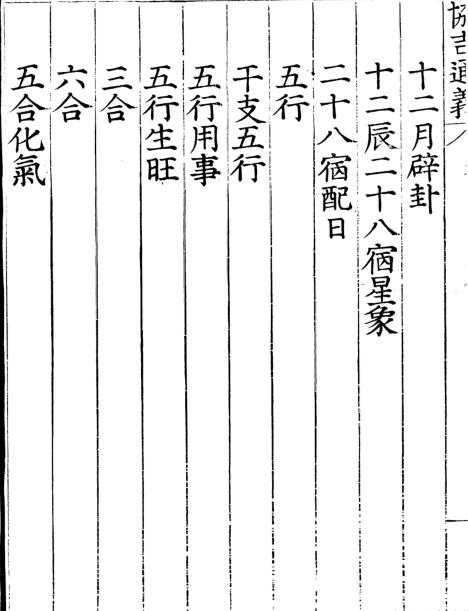 協吉通義
十二月辟卦
十二辰二十八宿星象
二十八宿配日
五行
干支五行
五行用事
五行生旺
三合
六合
五合化氣